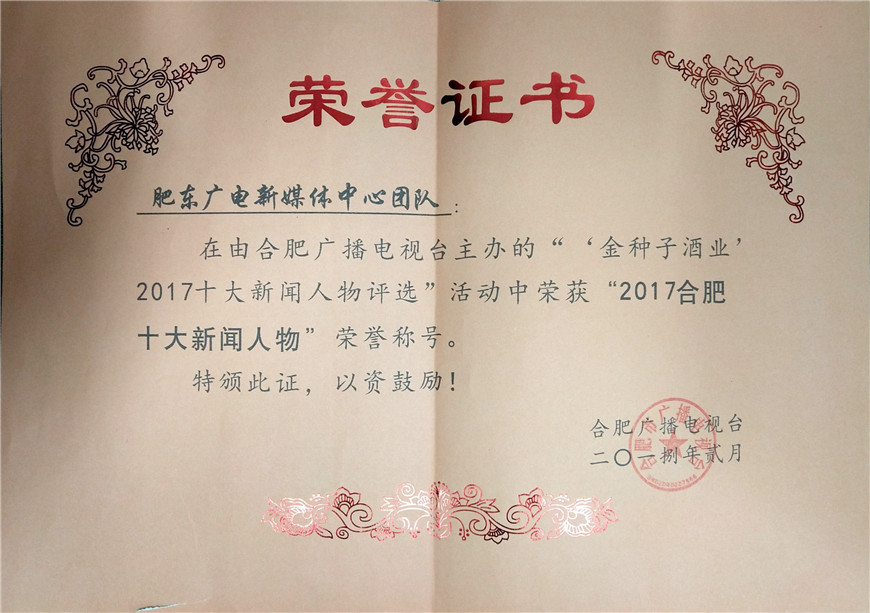 荣誉证书
肥东广电新媒体中心团队：
在由合肥广播电视台主办的“‘金种子酒业’
2017十大新闻人物评选”活动中荣获“2017合肥
十大新闻人物”荣誉称号。
特颁此证，以资鼓励！
合肥广播电视台
二〇一捌年贰月
合肥市广播电视台